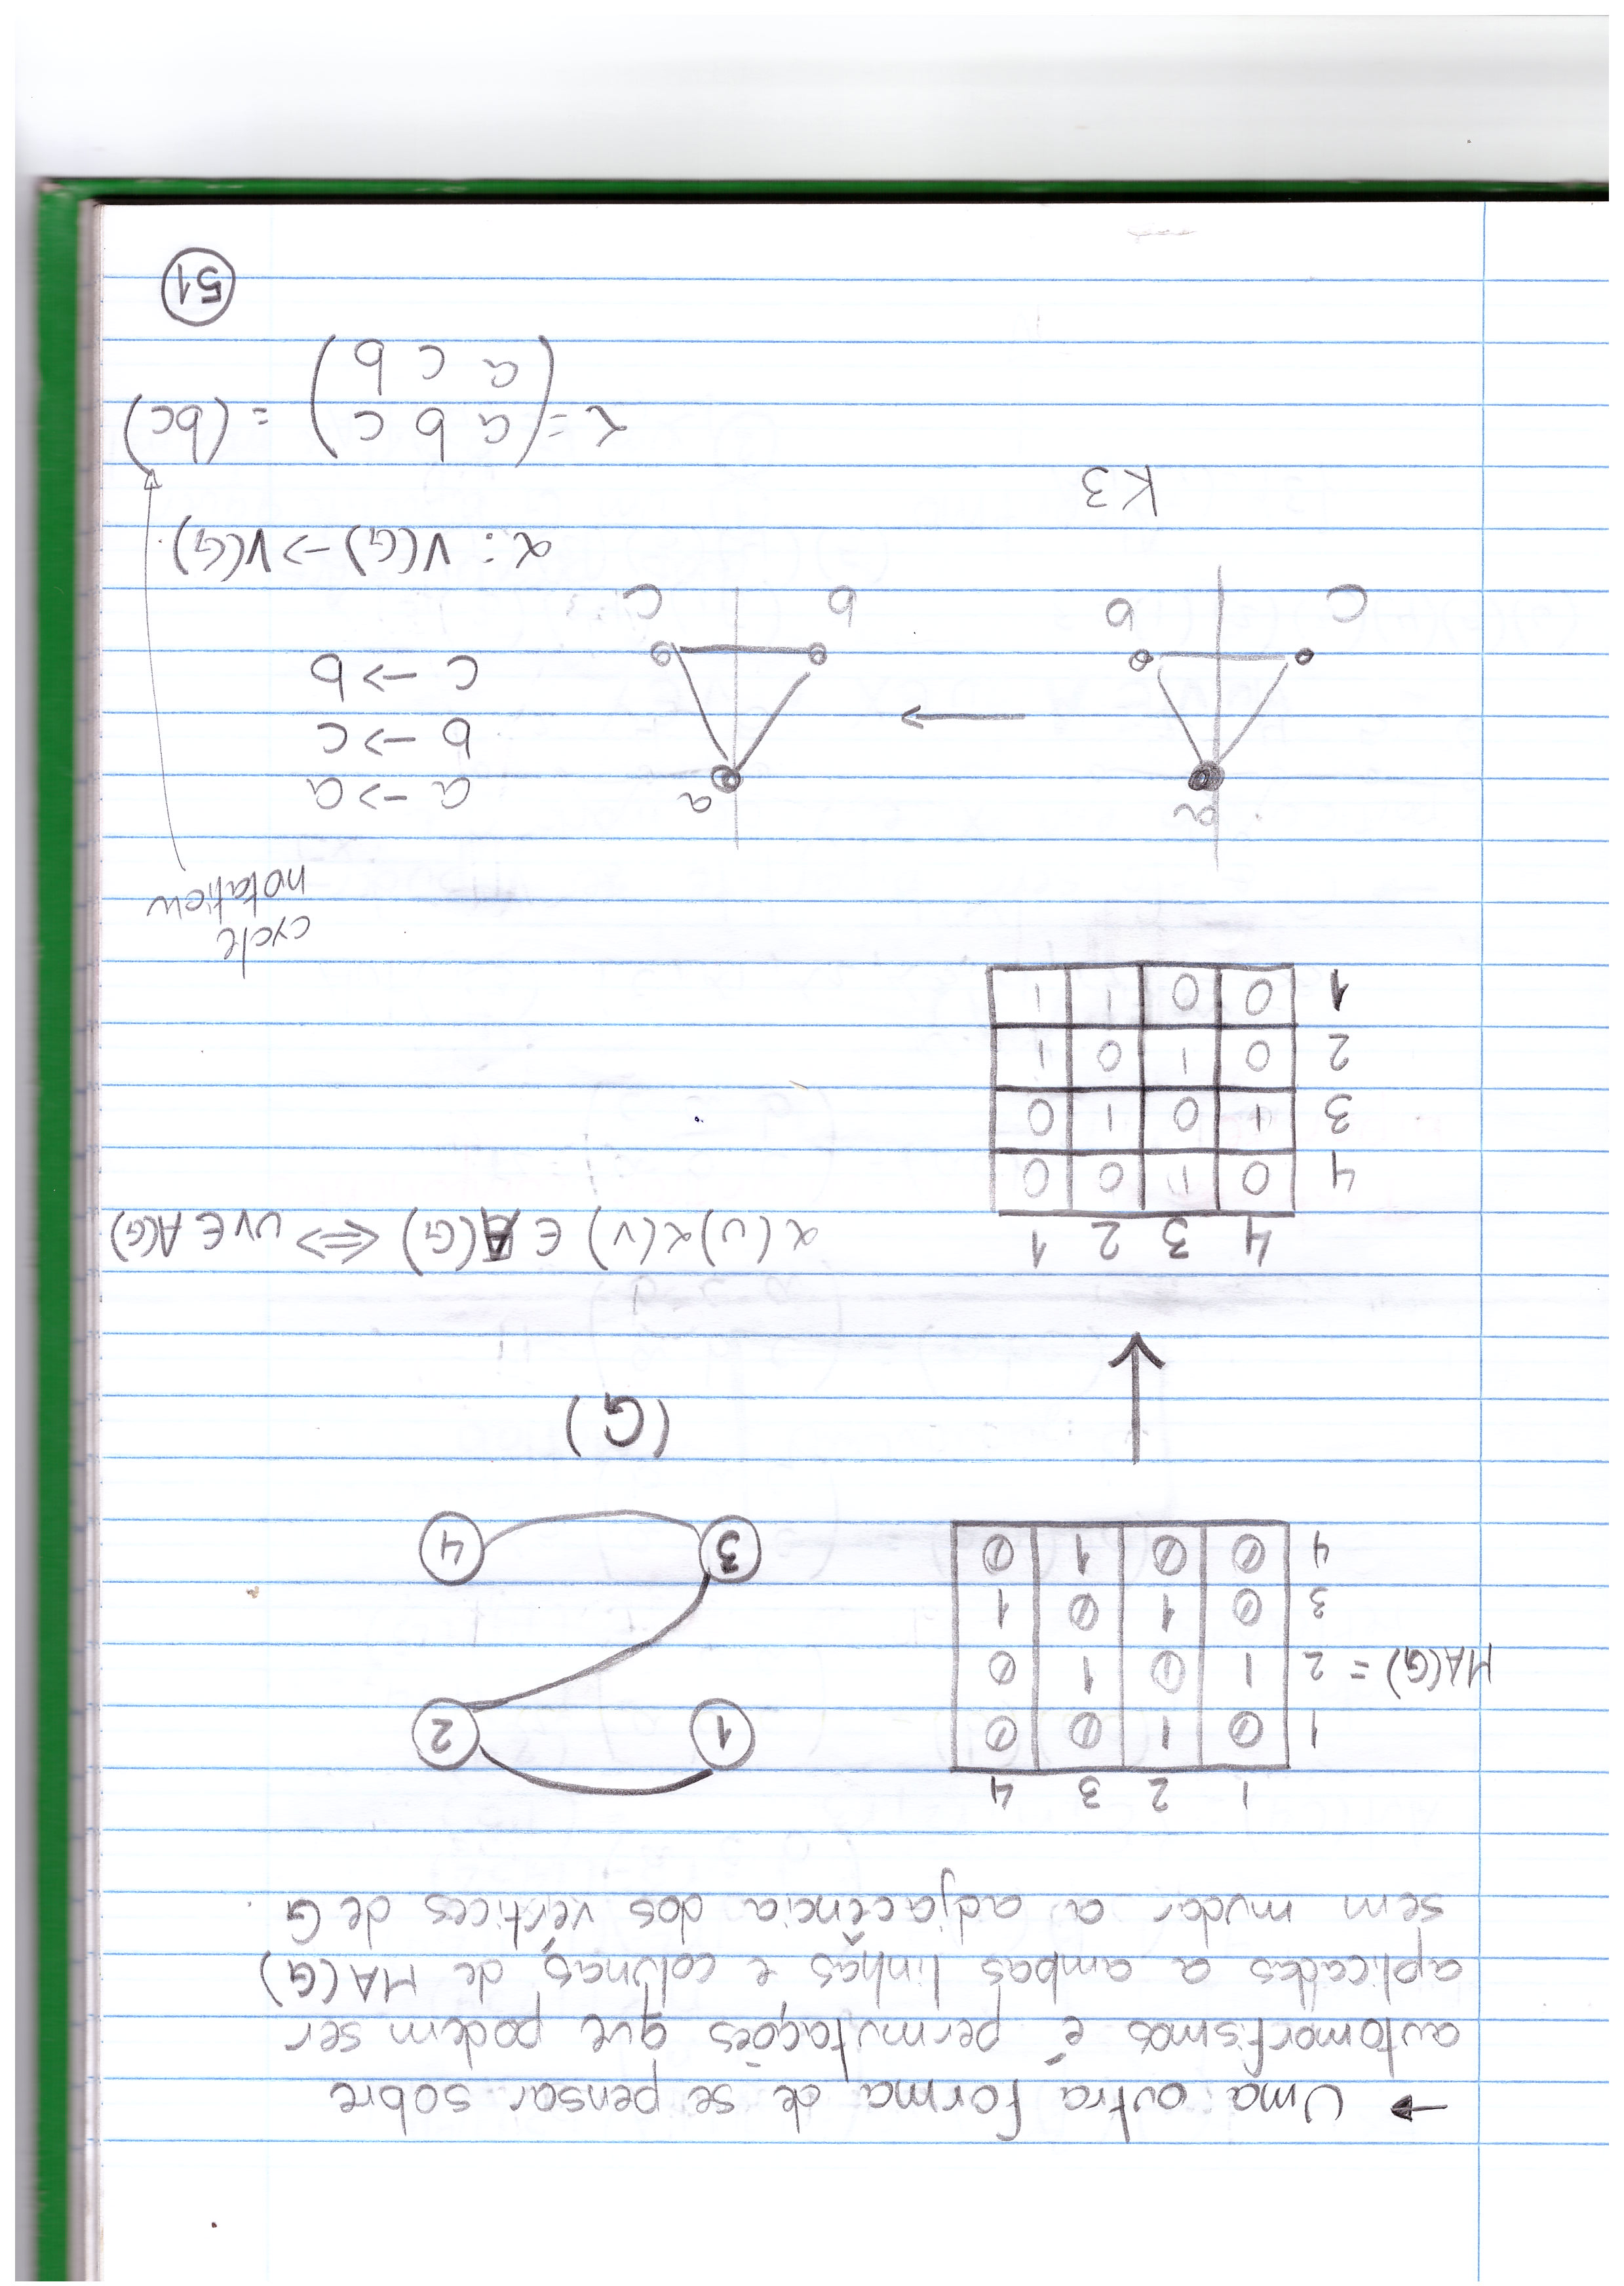 → Uma outra forma de se pensar sobre
automorfismos é permutações que podem ser
aplicadas a ambas linhas e colunas de MA(G)
sem mudar a adjacência dos vértices de G.
1 2 3 4
1 0 1 0 0
MA(G) = 2 1 0 1 0
3 0 1 0 1
4 0 0 1 0
1 2
3 4
(G)
4 3 2 1
4 0 1 0 0
3 1 0 1 0
2 0 1 0 1
1 0 0 1 1
α(u)α(v) ∈ A(G) <=> uv ∈ A(G)
cycle
notation
a
c b
a
b c
K3
a -> a
b -> c
c -> b
α: V(G) -> V(G).
α = (a b c) = (bc)
a c b
51